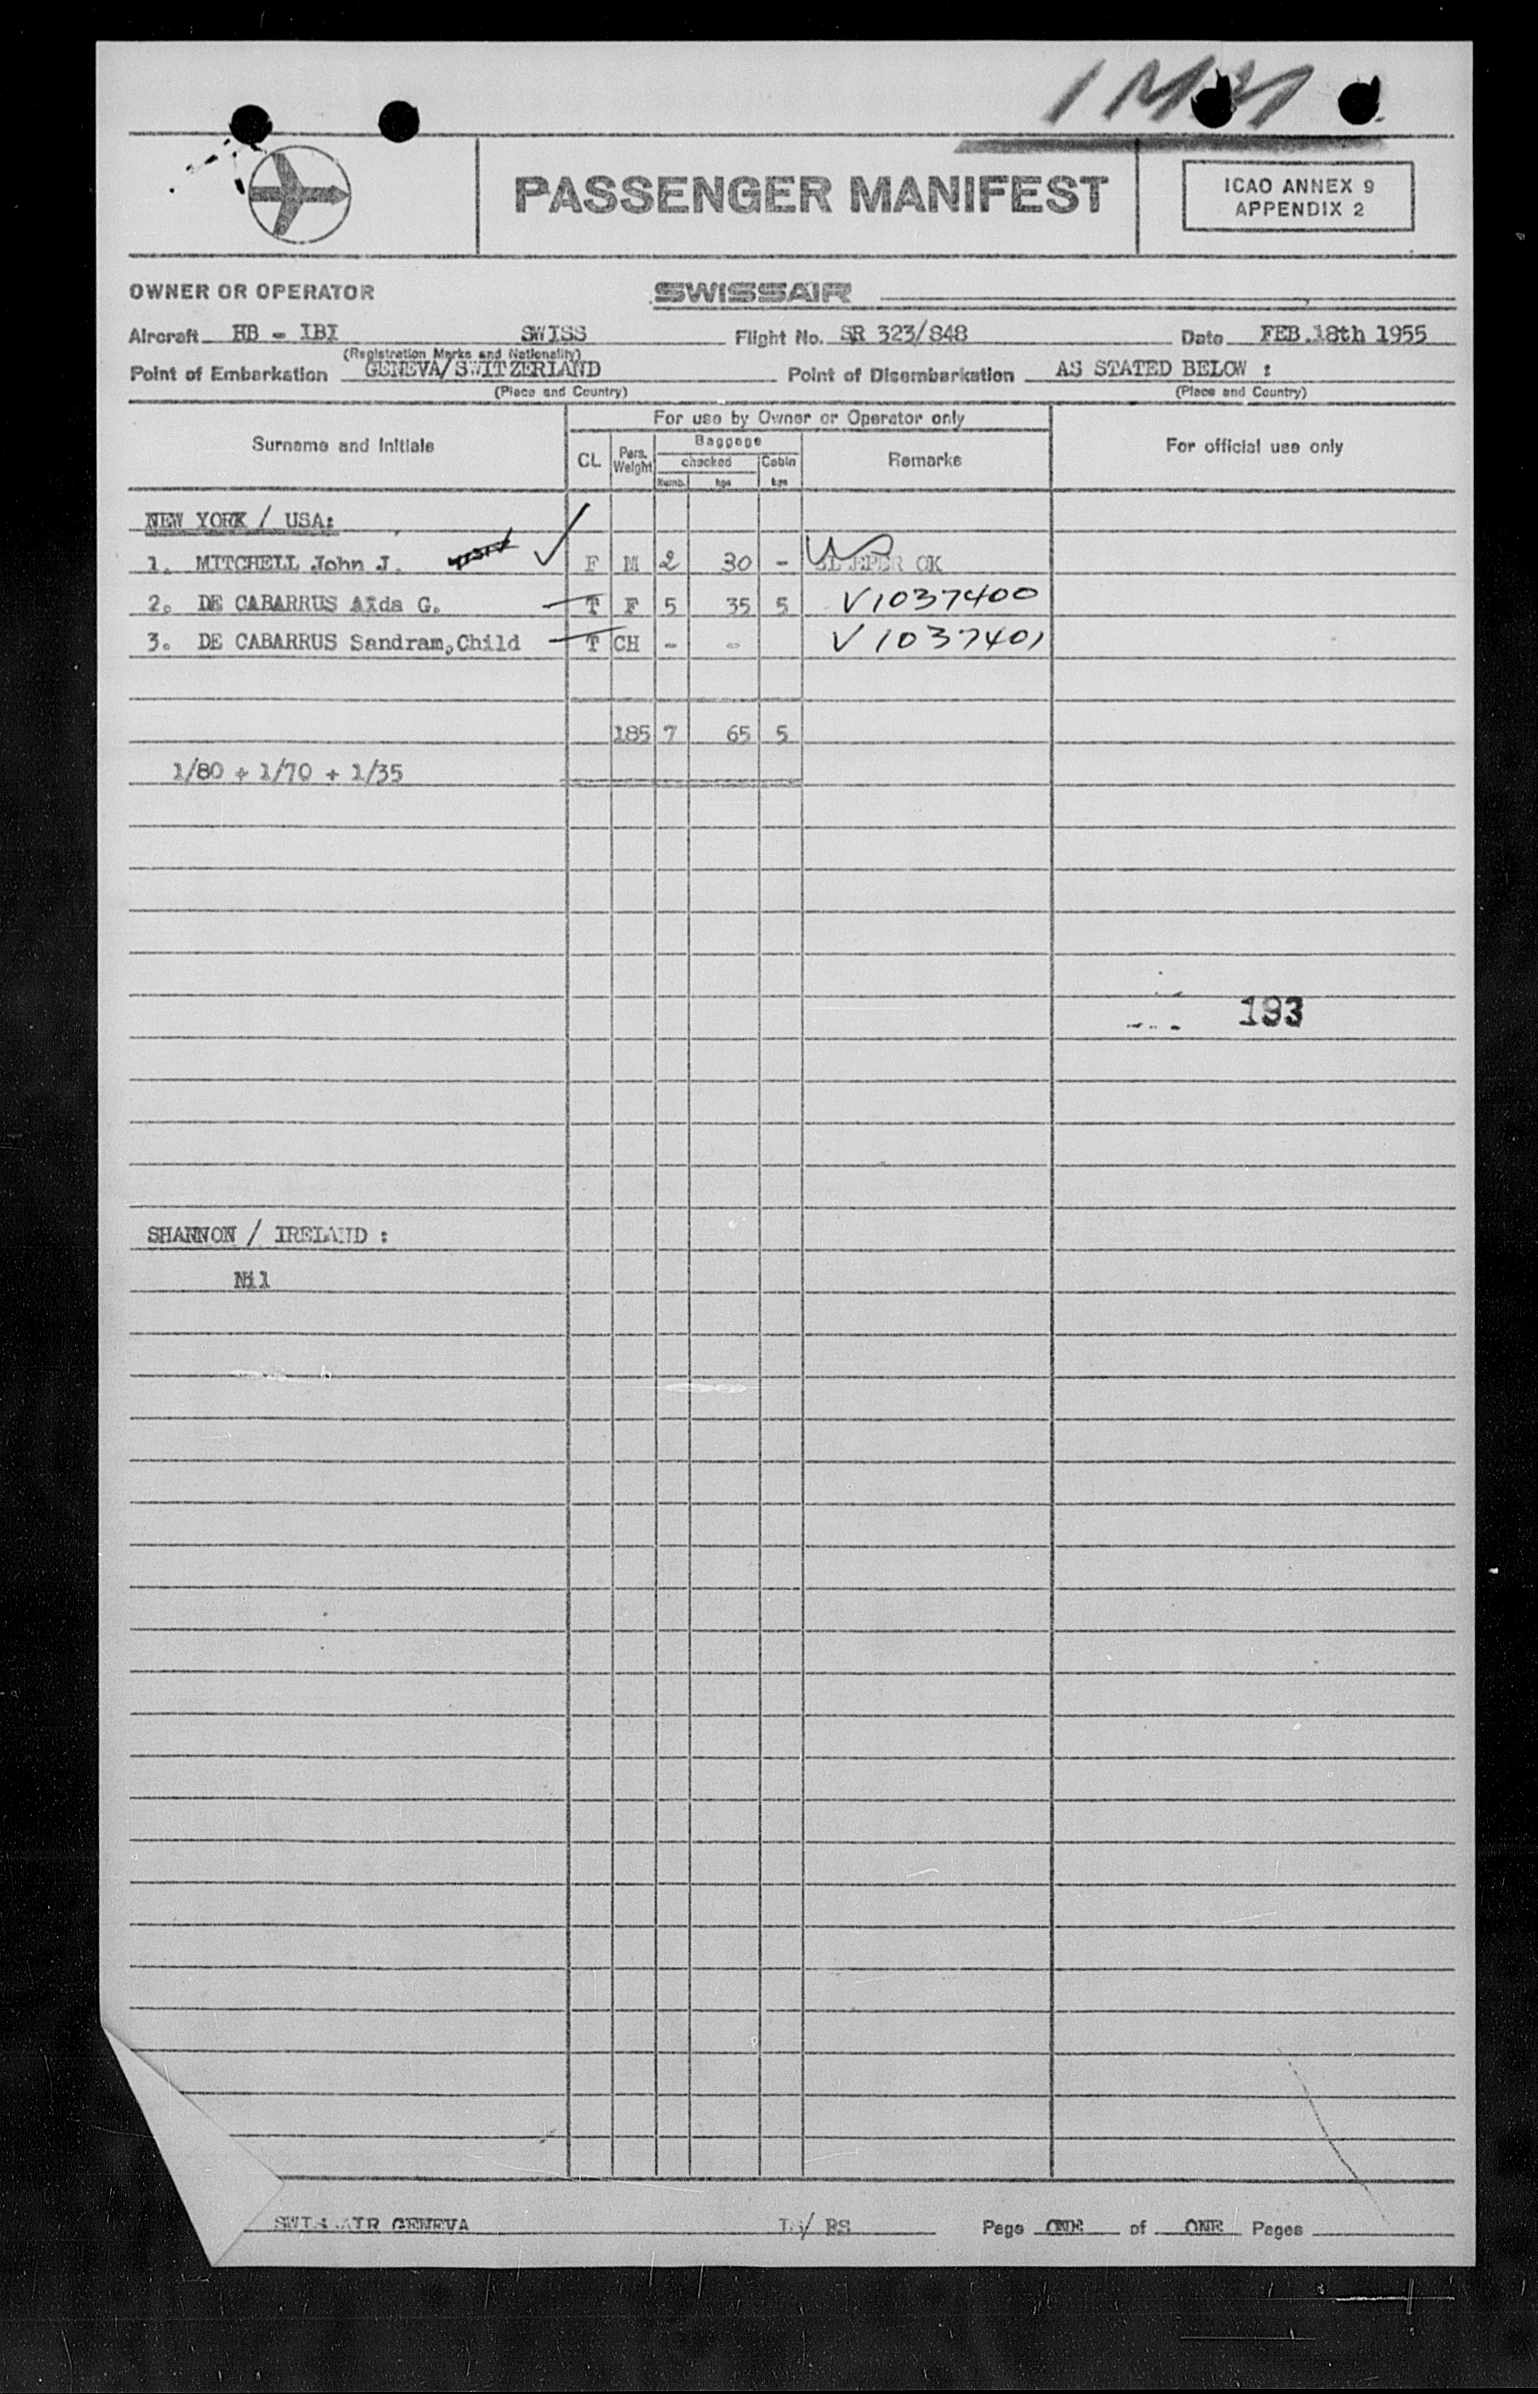 PASSENGER MANIFEST
ICAO ANNEX 9
APPENDIX 2
OWNER OR OPERATOR SWISSAIR
Aircraft HB - IBI SWISS Flight No. SR 323/848 Date FEB.18th 1955
(Registration Marks and Nationality)
Point of Embarkation GENEVA/SWITZERLAND Point of Disembarkation AS STATED BELOW :
(Place and Country) (Place and Country)
Surname and Initials For use by Owner or Operator only For official use only
CL Pers. Weight Baggage Remarks
checked Cabin
Numb. kgs kgs
NEW YORK / USA:
1. MITCHELL John J. F M 2 30 - SLEEPER OK
2. DE CABARRUS Aïda G. T F 5 35 5 V1037400
3. DE CABARRUS Sandram,Child T CH - - V1037401
185 7 65 5
1/80 + 1/70 + 1/35
193
SHANNON / IRELAND :
Nil
SWISSAIR GENEVA / RS Page ONE of ONE Pages